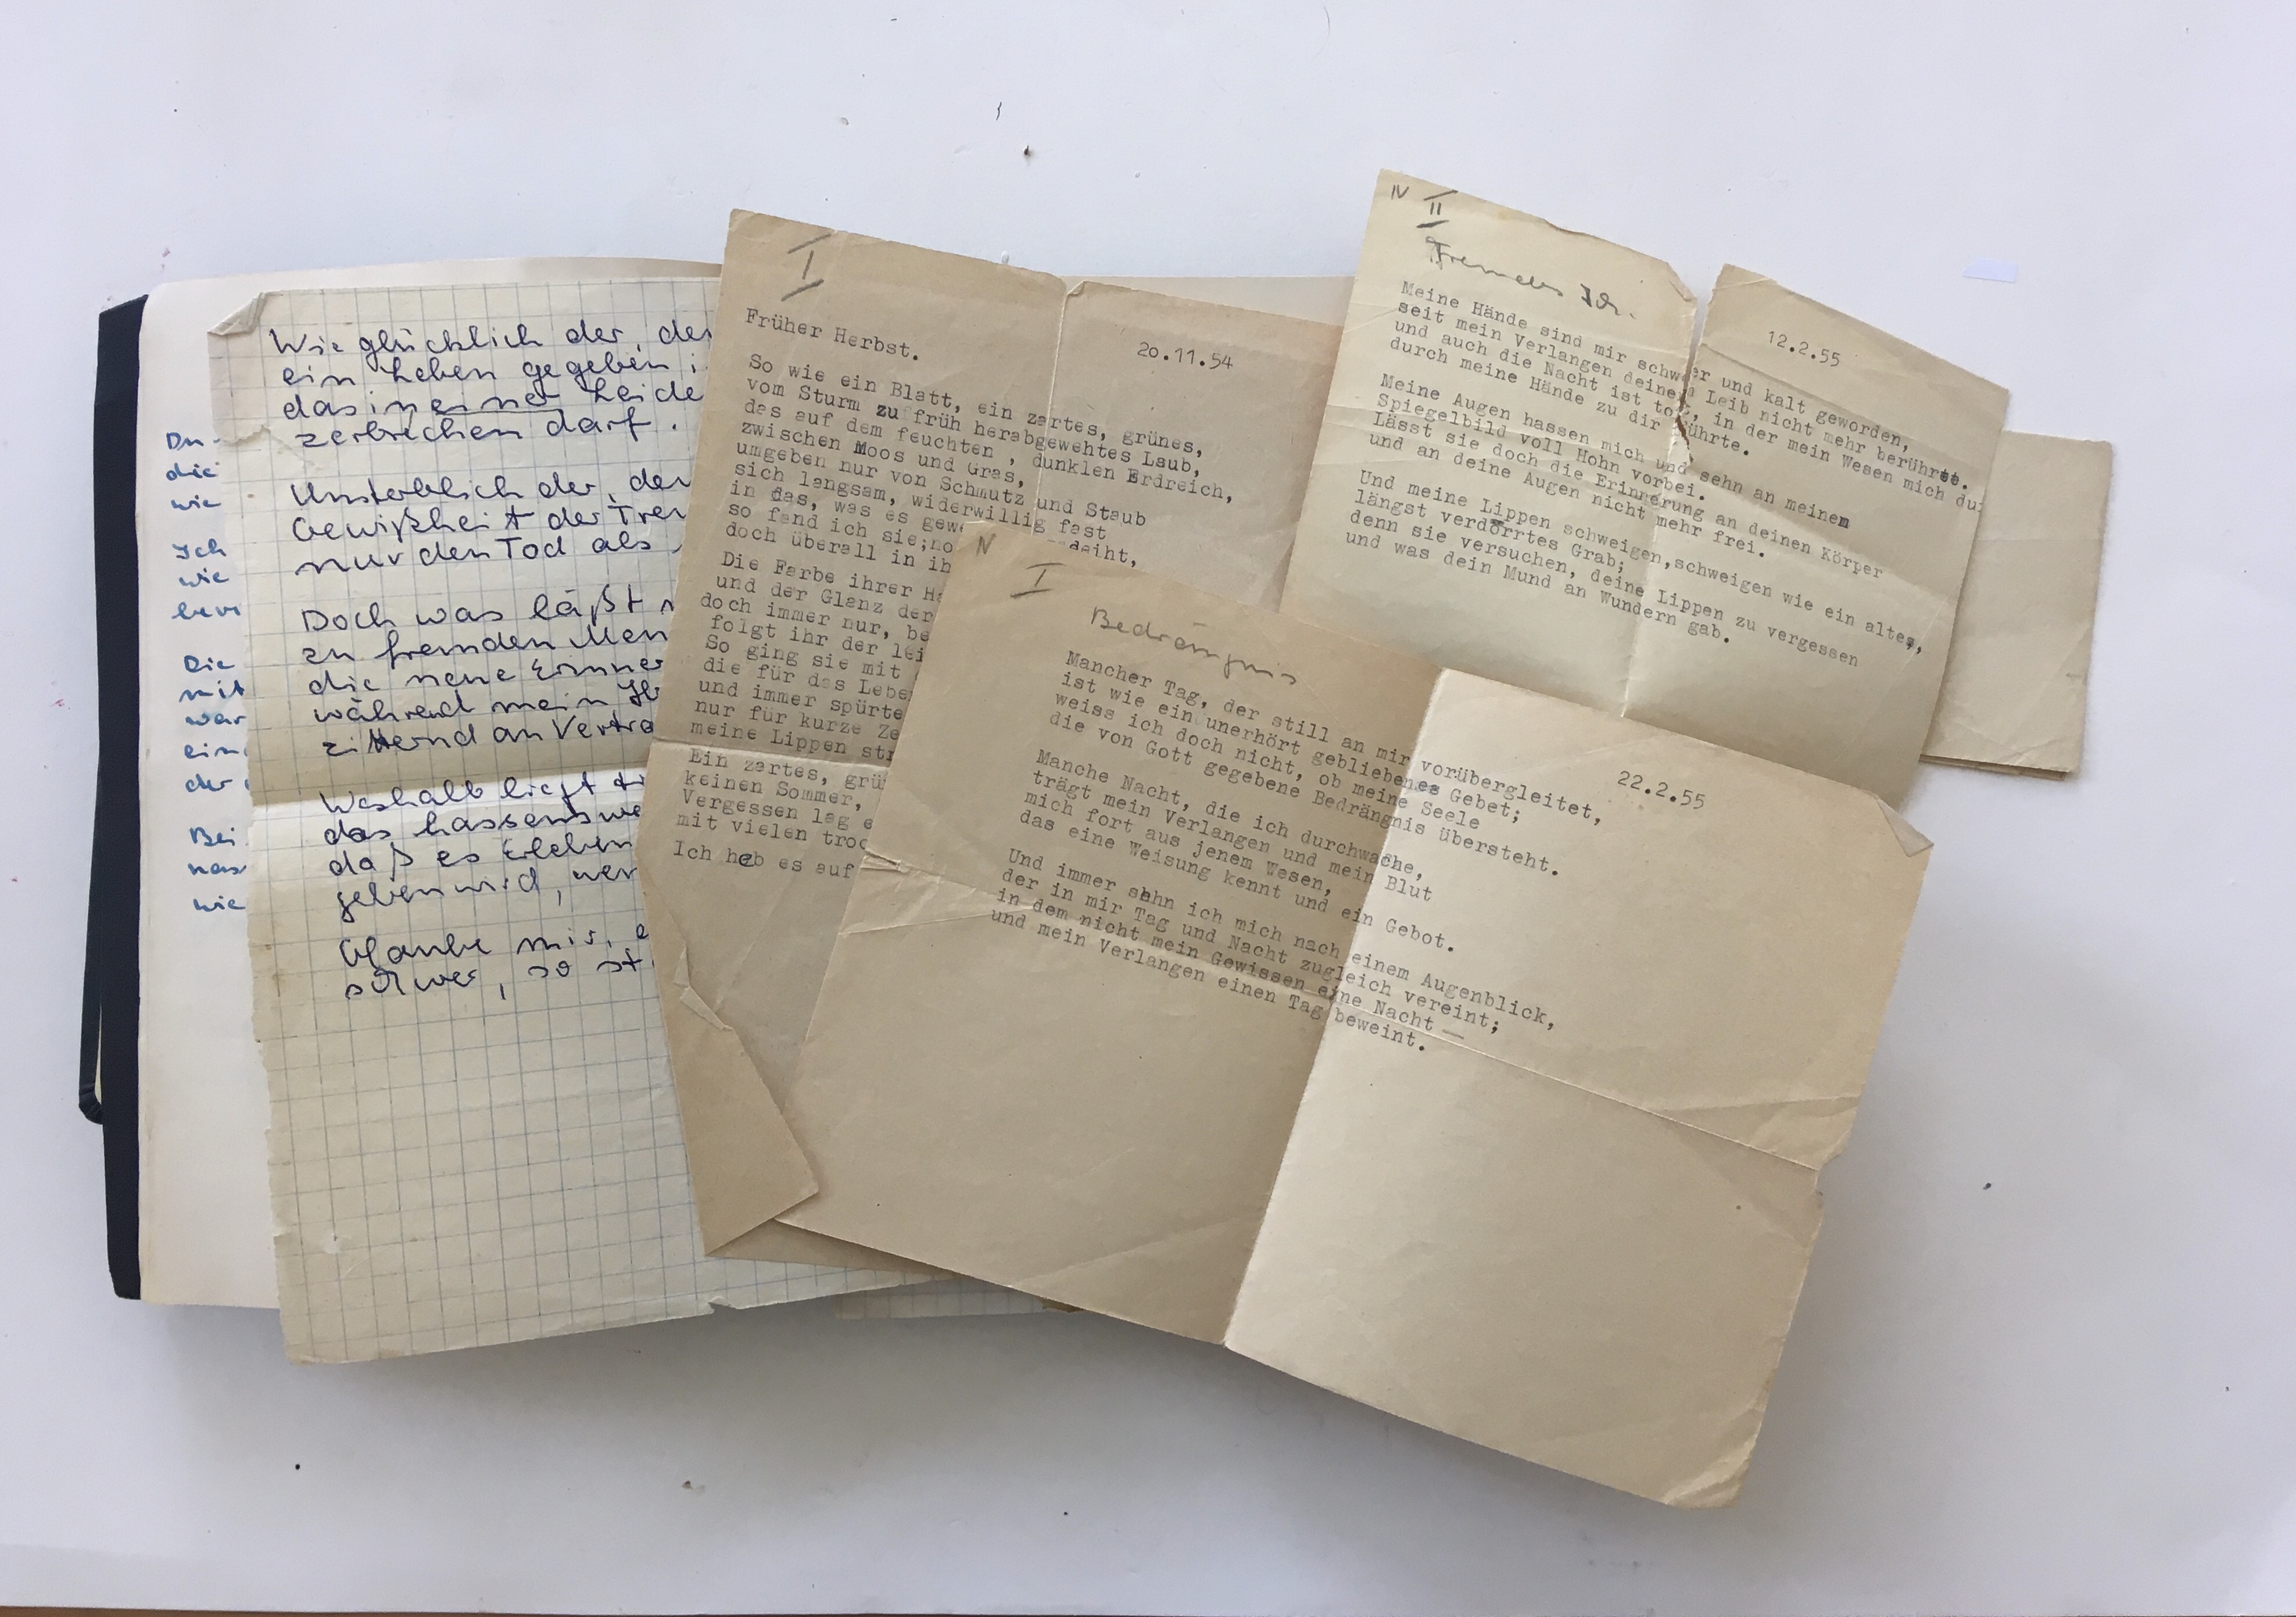 Du
die
wie
Ich
wie
Die
mit
war
der
Bei
wie
Wie glücklich der, der
ein Leben gegeben
das in einer Leide
zerbrechen darf.
Unsterblich der, der
Gewißheit der Tren
nur den Tod als
Doch was läßt
zu fremden Men
die neue Erinner
während mein
zitternd an Vertra
Weshalb liegt
das hassenswe
daß es Erleben
geben wird, wer
Glaube mir,
schwer, so st
I
Früher Herbst.
20.11.54
So wie ein Blatt, ein zartes, grünes,
vom Sturm zu früh herabgewehtes Laub,
das auf dem feuchten , dunklen Erdreich,
zwischen Moos und Gras,
umgeben nur von Schmutz und Staub
sich langsam, widerwillig fast
in das, was es gew gedeiht,
so fand ich sie;no
doch überall in ih
Die Farbe ihrer Ha
und der Glanz der
doch immer nur, be
folgt ihr der lei
So ging sie mit
die für das Lebe
und immer spürte
nur für kurze Ze
meine Lippen str
Ein zartes, grü
keinen Sommer,
Vergessen lag e
mit vielen troc
Ich hab es auf
IV
II
Fremdes Ich.
12.2.55
Meine Hände sind mir schwer und kalt geworden,
seit mein Verlangen deinen Leib nicht mehr berührte.
und auch die Nacht ist tot, in der mein Wesen mich du
durch meine Hände zu dir führte.
Meine Augen hassen mich und sehn an meinem
Spiegelbild voll Hohn vorbei.
Lässt sie doch die Erinnerung an deinen Körper
und an deine Augen nicht mehr frei.
Und meine Lippen schweigen,schweigen wie ein altes,
längst verdorrtes Grab;
denn sie versuchen, deine Lippen zu vergessen
und was dein Mund an Wundern gab.
IV
I
Bedrängnis
22.2.55
Mancher Tag, der still an mir vorübergleitet,
ist wie ein unerhört gebliebenes Gebet;
weiss ich doch nicht, ob meine Seele
die von Gott gegebene Bedrängnis übersteht.
Manche Nacht, die ich durchwache,
trägt mein Verlangen und mein Blut
mich fort aus jenem Wesen,
das eine Weisung kennt und ein Gebot.
Und immer sehn ich mich nach einem Augenblick,
der in mir Tag und Nacht zugleich vereint;
in dem nicht mein Gewissen eine Nacht —
und mein Verlangen einen Tag beweint.